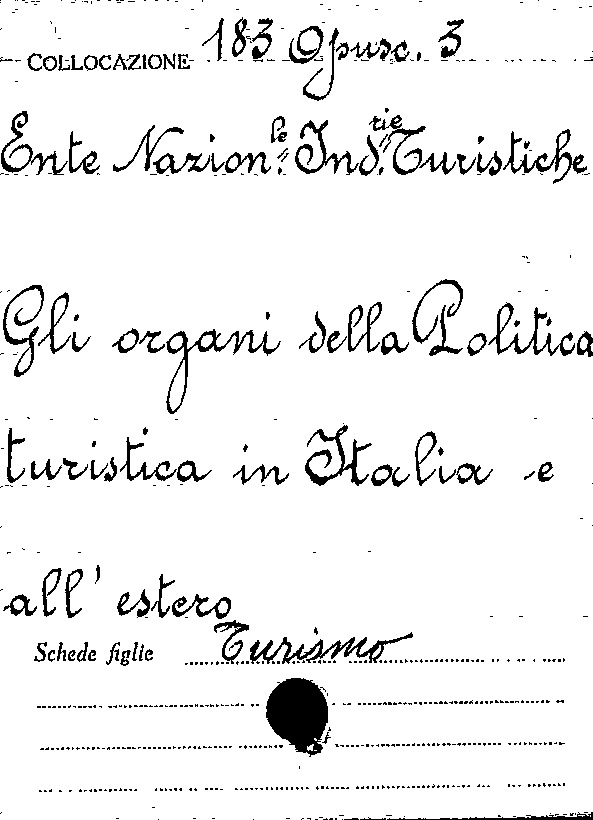 COLLOCAZIONE 183 Opusc. 3
Ente Nazion.le Ind.rie Turistiche
Gli organi della Politica
turistica in Italia e
all' estero
Schede figlie Turismo